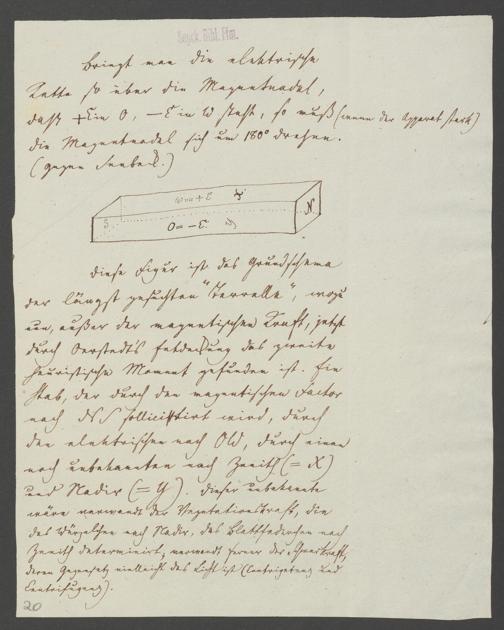 Senck. Bibl. Ffm.
Bringt man die elektrische
Kette so über die Magnetnadel,
daß +E in O, −E in W steht, so muß (wenn der Apparat stark)
die Magnetnadel sich um 180° drehen.
(gegen Seebeck.)
W = + E
S
N
O = − E.
Diese Figur ist das Grundschema
der längst gesuchten "Terrelle", wozu
nun, außer der magnetischen Kraft, jetzt
durch Oerstedt's Entdeckung das zweite
heuristische Moment gefunden ist. Ein
Stab, der durch den magnetischen Factor
nach S sollicitirt wird, durch
den elektrischen nach OW, durch einen
noch unbekannten nach Zenith (= X)
und Nadir (= Y). Dieser unbekannte
wäre verwandt der Vegetationskraft, die
das Würzelchen nach Nadir, das Blattfederchen nach
Zenith determinirt, verwandt ferner der
deren Gegensatz vielleicht das Licht ist (Centripetenz und
Centrifugenz).
20